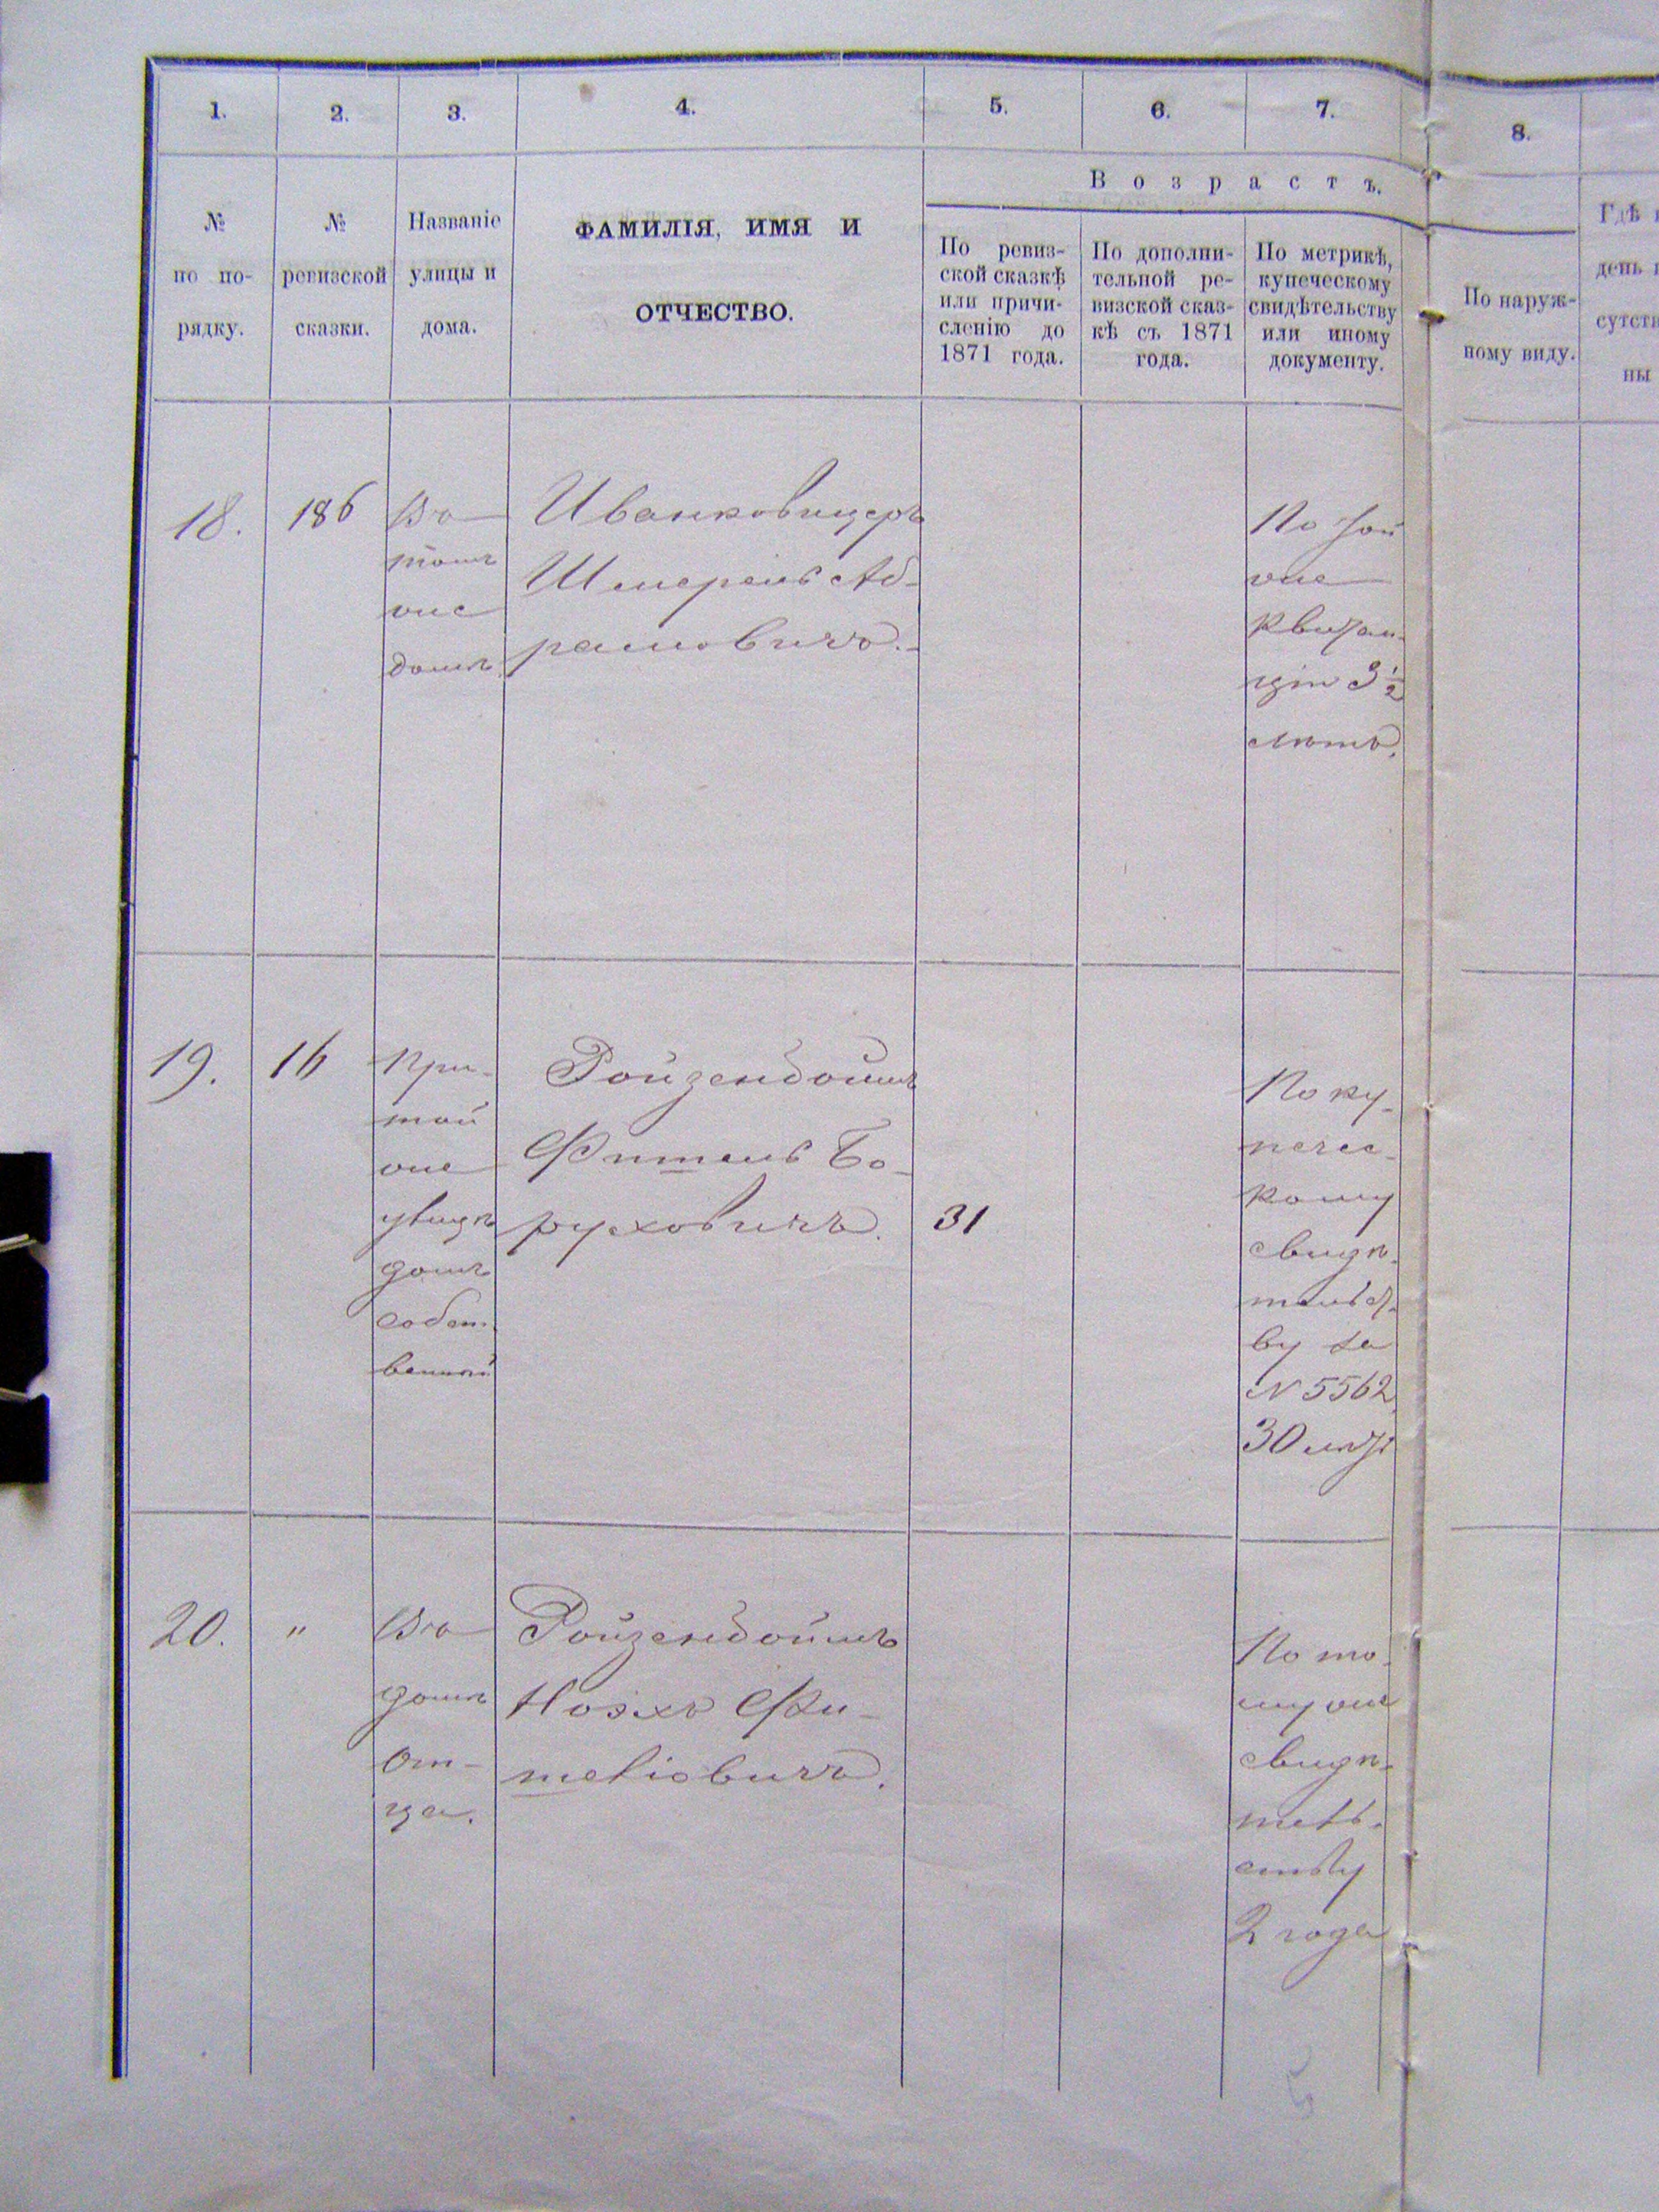 1.
2.
3.
4.
5.
6.
7.
8.
№
по по-
рядку.
№
ревизской
сказки.
Названіе
улицы и
дома.
ФАМИЛІЯ, ИМЯ И
ОТЧЕСТВО.
Возрастъ.
По ревиз-
ской сказкѣ
или причи-
сленію до
1871 года.
По дополни-
тельной ре-
визской сказ-
кѣ съ 1871
года.
По метрикѣ,
купеческому
свидѣтельству
или иному
документу.
По наруж-
ному виду.
Гдѣ
день
сутств
ны
18.
186
Въ
томъ
же
домѣ
Иванковицеръ
Шмерель Аб-
рамовичъ.
По той
же
квитан-
ціи 3 1/2
лѣтъ.
19.
16
При
той
же
улицѣ
домъ
собст-
венный
Ройзенбоймъ
Фишель Бо-
руховичъ.
31
По ку-
печес-
кому
свидѣ-
тельст-
ву за
N 5562
30 лѣтъ
20.
"
Въ
домѣ
От-
ца.
Ройзенбоймъ
Ноэхъ Фи-
шеліовичъ.
По то-
му же
свидѣ-
тель-
ству
2 года